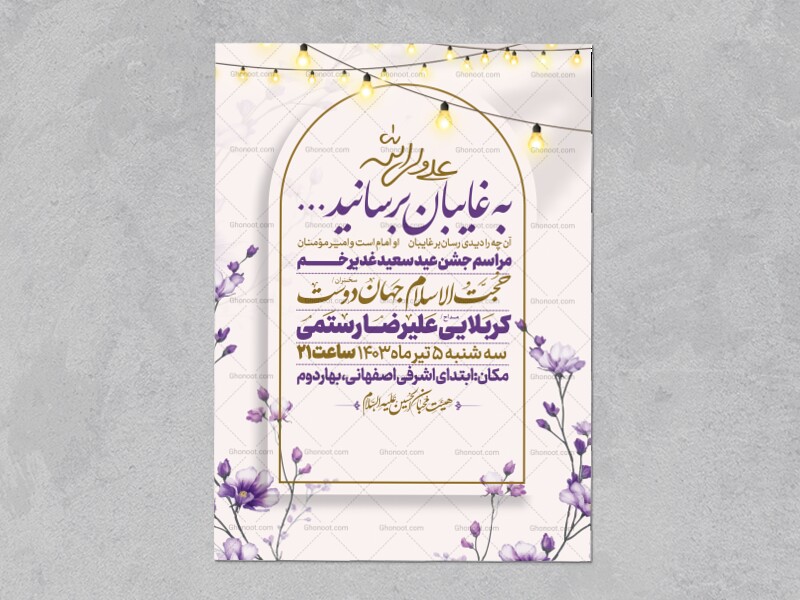 علی ولی الله
به غایبان برسانید...
آن چه را دیدی رسان بر غایبان او امام است و امیر مؤمنان
مراسم جشن عید سعید غدیر خم
سخنران/ حجت الاسلام جهان دوست
مداح/ کربلایی علیرضا رستمی
سه شنبه ۵ تیر ماه ۱۴۰۳ ساعت ۲۱
مکان: ابتدای اشرفی اصفهانی، بهار دوم
هیئت محبان الحسین علیه السلام
Ghonoot.com